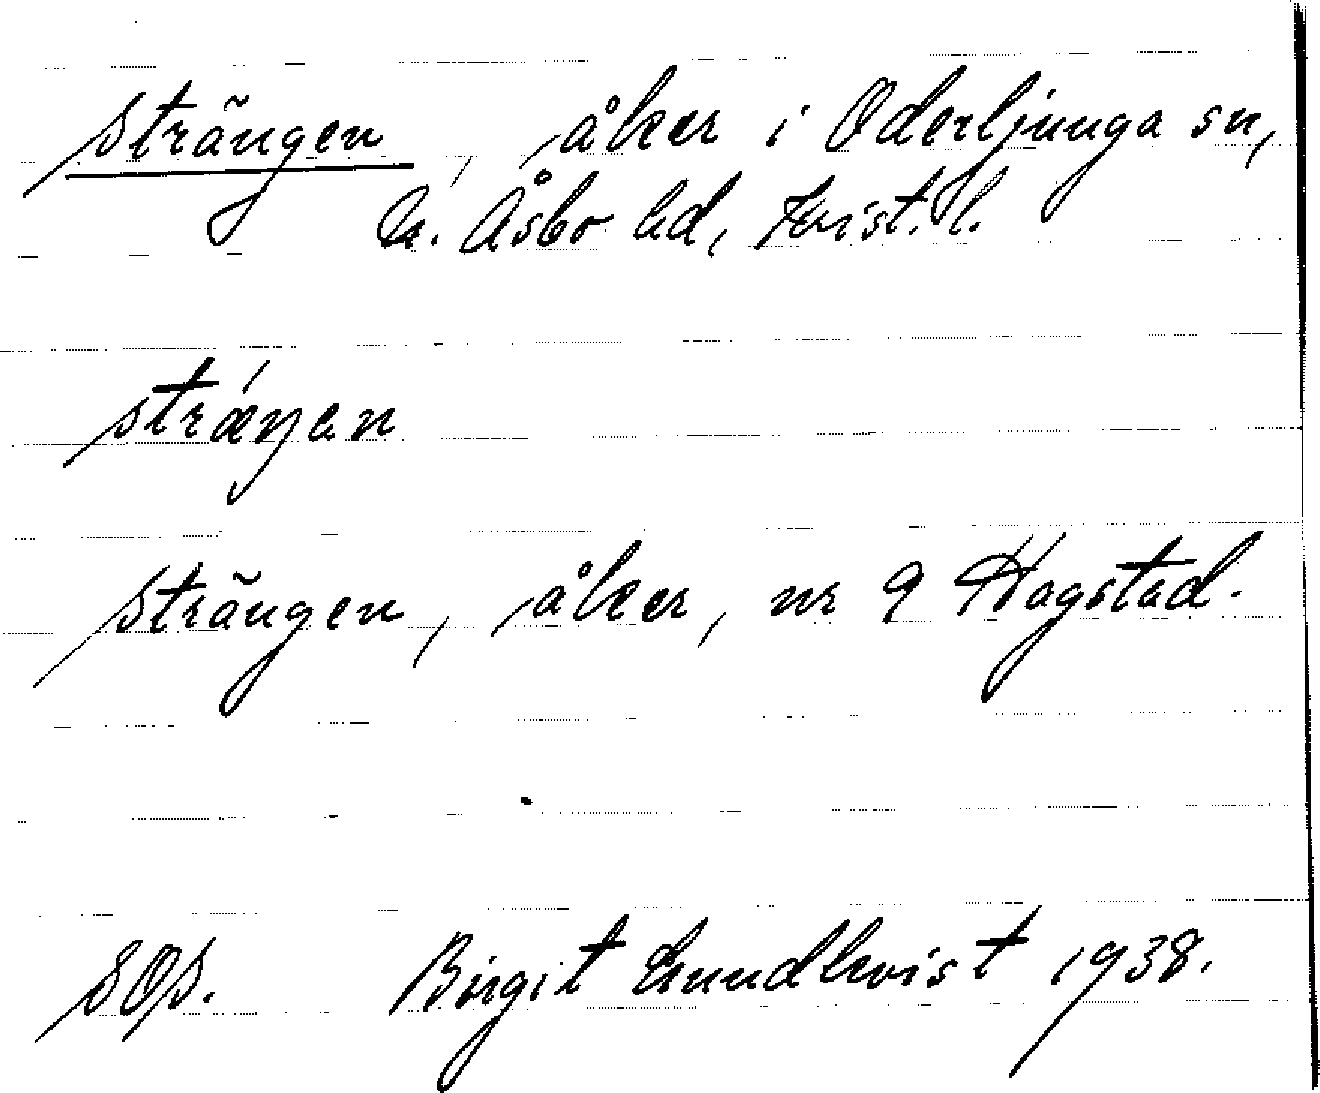 Strängen, åker i Oderljunga sn,
N. Åsbo hd, Krist. l.
stráŋen
Strängen, åker, nr 9 Hagstad.
SOS. Birgit Lundkvist 1938.